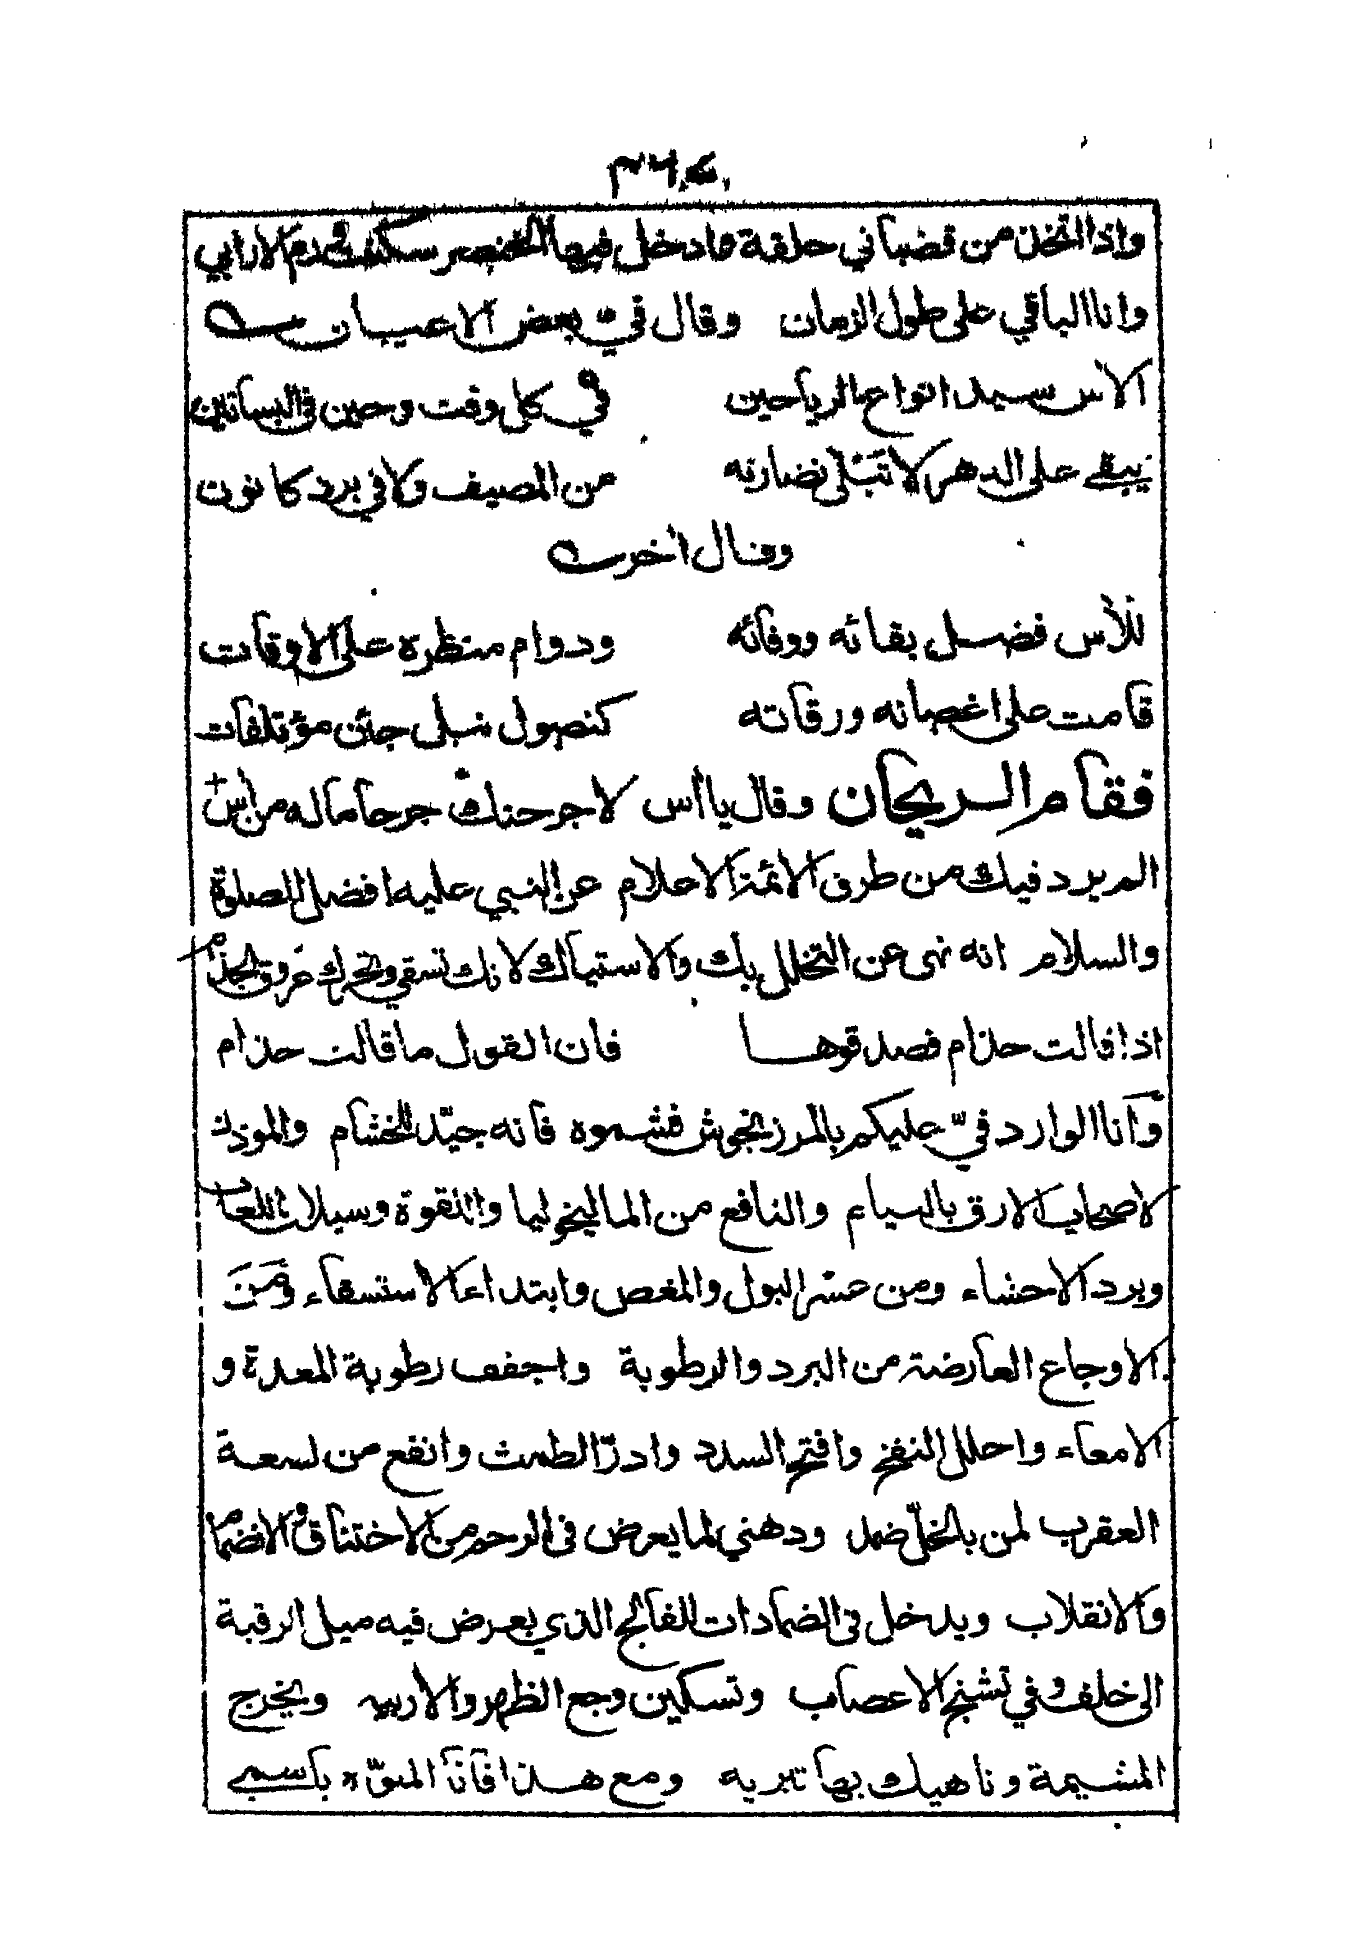 واذا اتخذ من قضباني حلقة وادخل فيها الخنصر سكنت ورم الارابي
وانا الباقي على طول الزمان وقال فيّ بعض الاعيان
الآس سيد انواع الرياحين في كل وقت وحين في البساتين
يبقى على الدهر لا تبلى نضارته من المصيف ولا في برد كانون
وقال آخر
للآس فضل بقائه ووفائه ودوام منظره على الاوقات
قامت على اغصانه ورقاته كنصول نبل جئن مؤتلفات
فقام الريحان وقال يا آس لاجرحنك جرحا ماله من آس
الم يرد فيك من طرق الائمة الاعلام عن النبي عليه افضل الصلوة
والسلام انه نهى عن التخلل بك والاستياك لانك تسقي وتحرك عروق الجذام
اذا قالت حذام فصدقوها فان القول ما قالت حذام
وانا الوارد فيّ عليكم بالمرزنجوش فشموه فانه جيّد للخشام والموذن
لاصحاب الارق بالسيام والنافع من الماليخوليا واللقوة وسيلان اللعاب
وبرد الاحشاء ومن عسر البول والمغص وابتداء الاستسقاء ومن
الاوجاع العارضة من البرد والرطوبة واجفف رطوبة المعدة و
الامعاء واحلل النفخ وافتح السدد وادرّ الطمث وانفع من لسعة
العقرب لمن بالخلّ ضمد ودهني لما يعرض في الرحم من الاختناق والانضمام
والانقلاب ويدخل في الضمادات للفالج الذي يعرض فيه ميل الرقبة
الى خلف وفي تشنج الاعصاب وتسكين وجع الظهر والاربيه ويخرج
المشيمة وناهيك بها تبريه ومع هذا فانا المنوّه باسمي